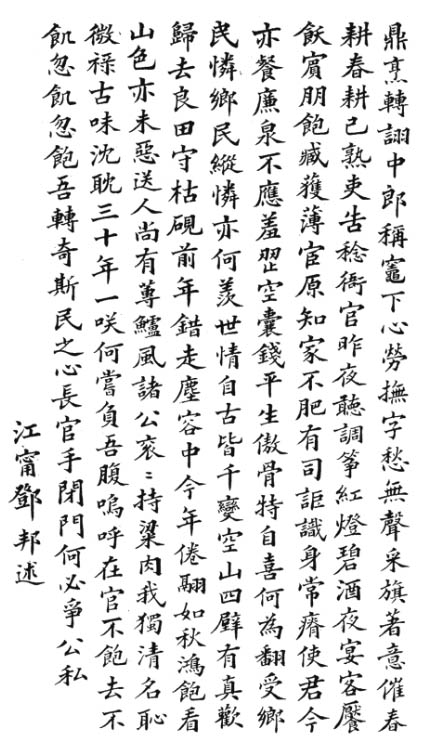 鼎烹轉詡中郎稱竈下心勞撫字愁無聲采旗著意催春
耕春耕已熟吏告稔衙官昨夜聽調箏紅燈碧酒夜宴客饜
飫賓朋飽臧獲薄宦原知家不肥有司詎識身常瘠使君今
亦餐廉泉不應羞澀空囊錢平生傲骨特自喜何為翻受鄉
民憐鄉民縱憐亦何羨世情自古皆千變空山四壁有真歡
歸去良田守枯硯前年錯走塵容中今年倦翮如秋鴻飽看
山色亦未惡送人尚有蓴鱸風諸公袞〻持粱肉我獨清名恥
微祿古味沈耽三十年一咲何嘗負吾腹嗚呼在官不飽去不
飢忽飢忽飽吾轉奇斯民之心長官手閉門何必爭公私
江甯鄧邦述